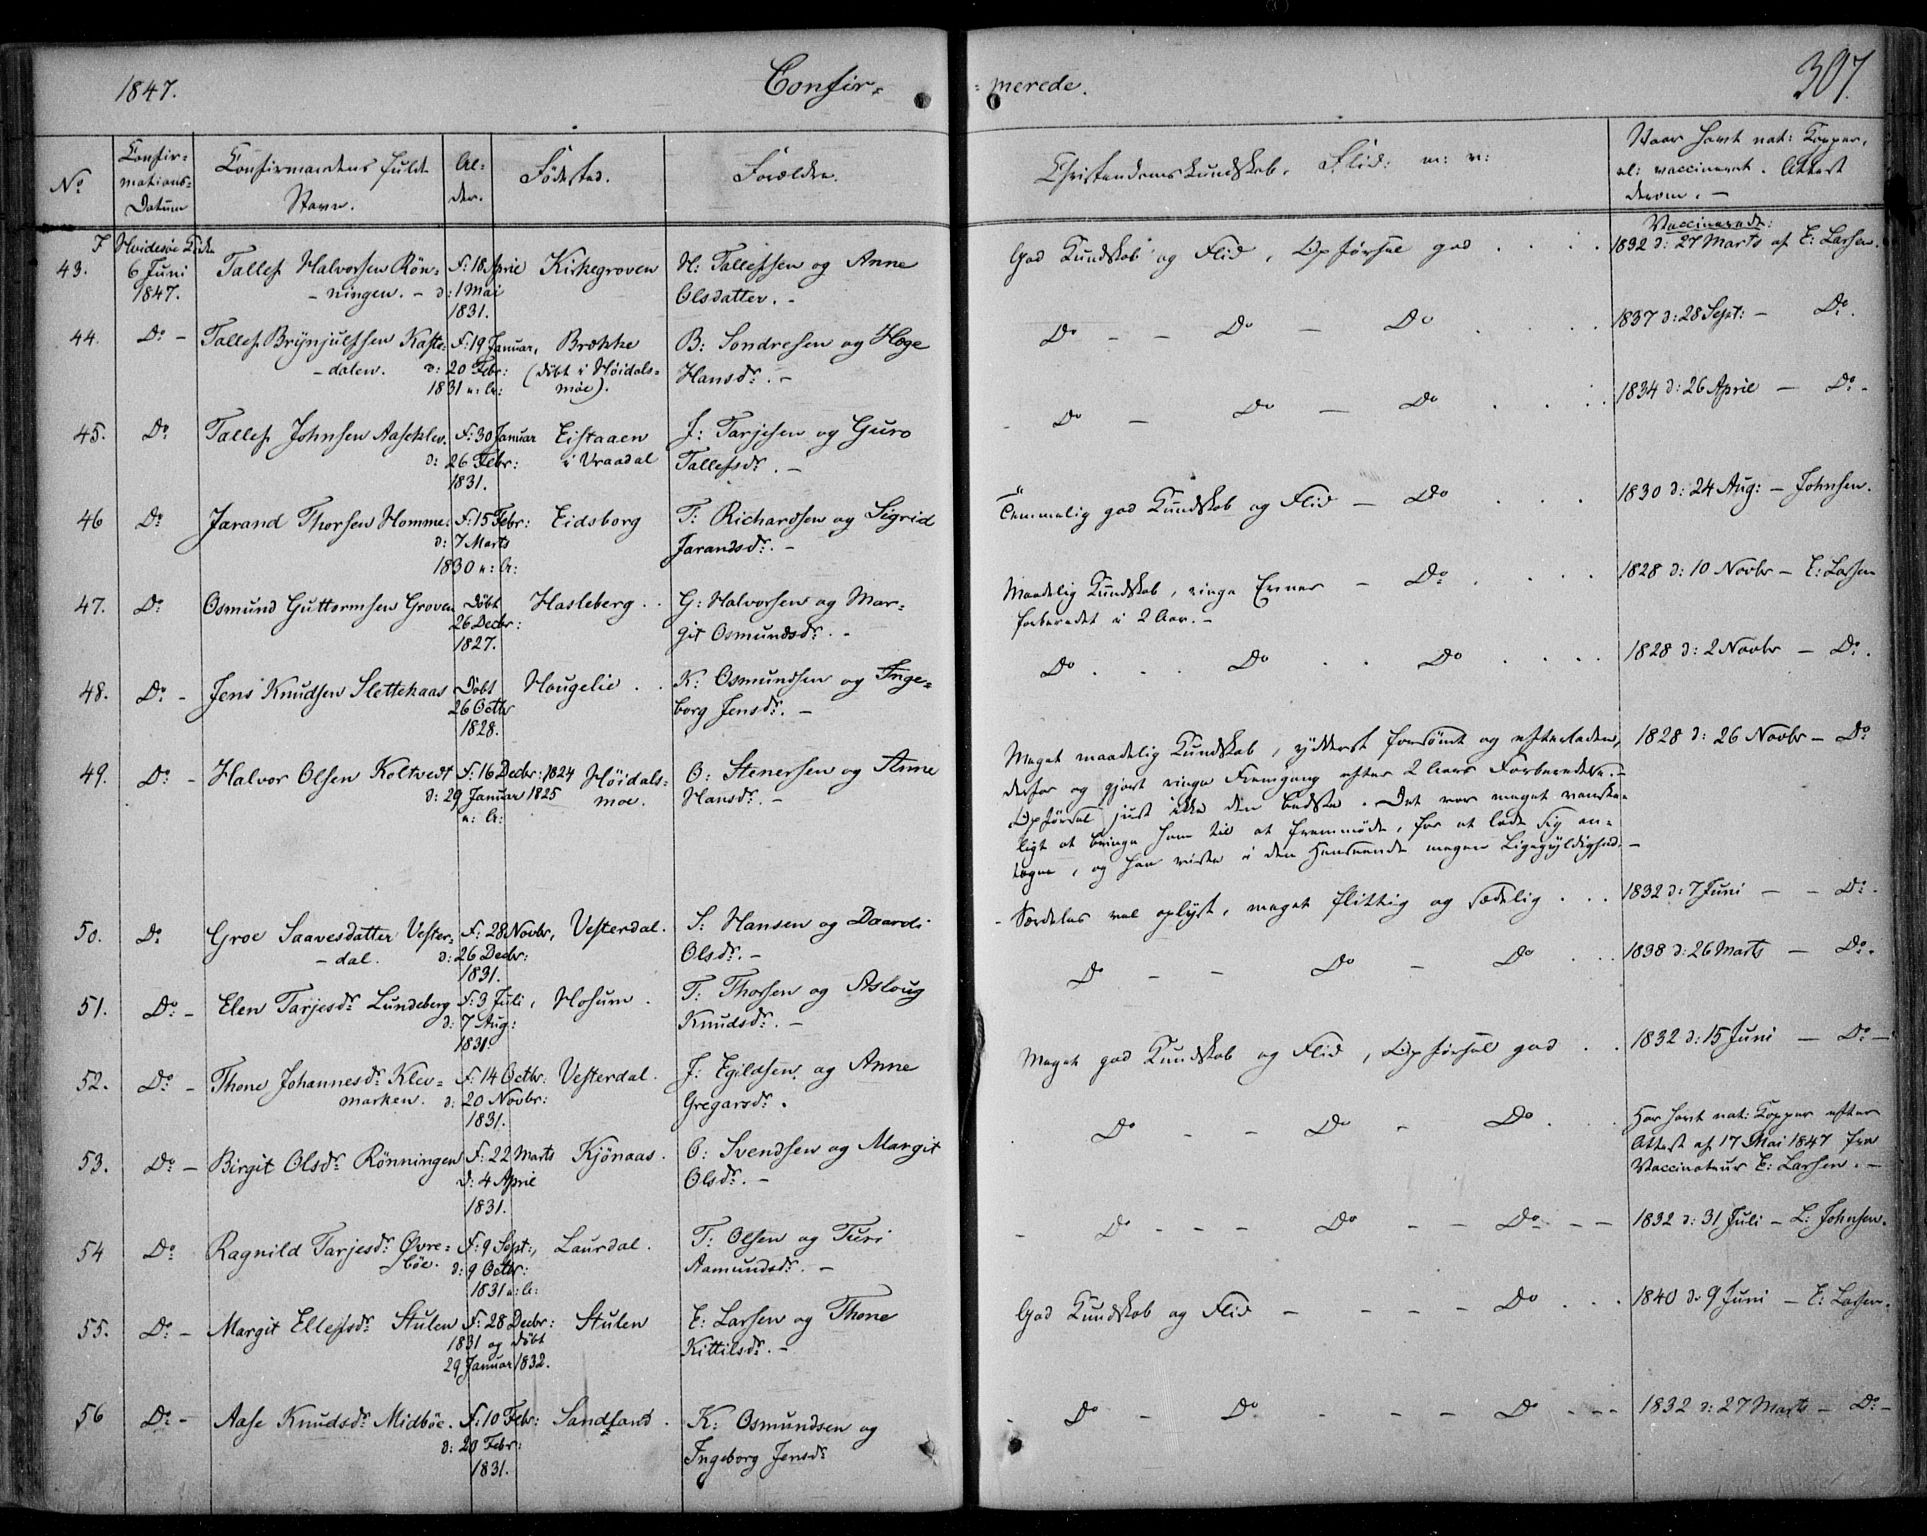 1847.
Confir-
merede.
307.
No
Confir-
mations-
Datum
Confirmandens fulde
Navn.
Al-
der.
Fødested.
Forældre.
Christendomskundskab, Flid: m: v:
Naar havt nat: Kopper,
el: vaccineret. Attest
derom. -
I Hvidesøe Kirke
Vaccinerede:
43. 6 Juni 1847. Tallef Halvorsen Røn-
ningen. - F: 18 April d: 1 Mai 1831. Kirkegroven H: Tallefssen og Anne
Olsdatter. -
God Kundskab og Flid, Opførsel god . . . . 1832 d: 27 Marts af E: Larsen.
44. Do - Tallef Brynjulfssen Kaste-
dalen. F: 19 Januar, d: 20 Febr: 1831 u: A: Brække (døbt i Høidals-
møe). B: Sondresen og Hæge
Hansdr. -
Do - - Do - Do . . . . 1837 d: 28 Sept: - Do.
45. Do Tallef Johnsen Aaseklev. F: 30 Januar d: 26 Febr: 1831. Eistaaen
i Vraadal J: Tarjesen og Guro
Tallefsdr. -
Do - Do - Do . . . . 1834 d: 26 April - Do -
46 Do Jarand Thorsen Homme. F: 15 Febr: d: 7 Marts 1830 u: A: Eidsborg T: Richardsen og Sigrid
Jarandsdr. -
Temmelig god Kundskab og Flid - Do . . . 1830 d: 24 Aug: - Johnsen.
47. Do Osmund Guttormsen Groven Døbt 26 Decbr: 1827. Hasleberg . . G: Halvorsen og Mar-
git Osmundsdr. -
Maadelig Kundskab, ringe Evner - Do . . . . 1828 d: 10 Novbr - E: Larsen
forberedet i 2 Aar. -
48. Do - Jens Knudsen Slettehaas Døbt 26 Octbr 1828. Hougelie . . K: Osmundsen og Inge-
borg Jensdr. -
Do . . . Do . . Do . . . . 1828 d: 2 Novbr - Do.
49. Do - Halvor Olsen Koltvedt F: 16 Decbr: 1824 d: 29 Januar 1825 u: A: Høidals-
moe. O: Stenersen og Anne
Hansdr. -
Meget maadelig Kundskab, yderst forsømt og efterladen, 1828 d: 26 Novbr - Do
derfor og gjort ringe Fremgang efter 2 Aars Forberedelse. -
Opførsel just ikke den bedste. Det var meget vanske-
ligt at bringe ham til at fremmøde, for at lade sig an-
tegne, og han viste i den Henseende megen Ligegyldighed. -
50. Do Groe Saavesdatter Vester-
dal. F: 28 Novbr, d: 26 Decbr: 1831. Vesterdal. S: Hansen og Daardi
Olsdr. -
- Særdeles vel oplyst, meget flittig og sædelig . . . 1832 d: 7 Juni - - Do -
51. Do - Elen Tarjesdr Lundeberg F: 3 Juli, d: 7 Aug: 1831. Hosum . T: Thorsen og Asloug
Knudsdr. -
Do - - Do - Do . . . 1838 d: 26 Marts - Do.
52. Do - Thone Johannesdr Klev-
marken. F: 14 Octbr: d: 20 Novbr: 1831. Vesterdal. J: Egildsen og Anne
Gregarsdr.
Meget god Kundskab og Flid, Opførsel god . . 1832 d: 15 Juni - Do -
53. Do - Birgit Olsdr Rönningen F: 22 Marts D: 4 April 1831. Kjönaas. O: Svendsen og Margit
Olsdr. -
Do - - Do - Do . . . Har havt nat: Kopper efter
Attest af 17 Mai 1847 fra
Vaccinateur E: Larsen. -
54 Do Ragnild Tarjesdr Øvre-
bøe. F: 9 Sept:, d: 9 Octbr: 1831 u: A: Laurdal. T: Olsen og Turi
Aamundsdr. -
- Do - - - Do - - Do - - 1832 d: 31 Juli - L: Johnsen.
55. Do - Margit Ellefsdr Stulen F: 28 Decbr: 1831 og døbt 29 Januar 1832. Stulen E: Larsen og Thone
Kittilsdr. -
God Kundskab og Flid - - - - Do . . . 1840 d. 9 Juni - E: Larsen.
56 Do - Aase Knudsdr Midbøe. F: 10 Febr: d: 20 Febr: 1831. Sandland . K: Osmundsen og
Ingeborg Jensdr
- Do - Do - - - Do - - - 1832 d: 27 Marts - Do -